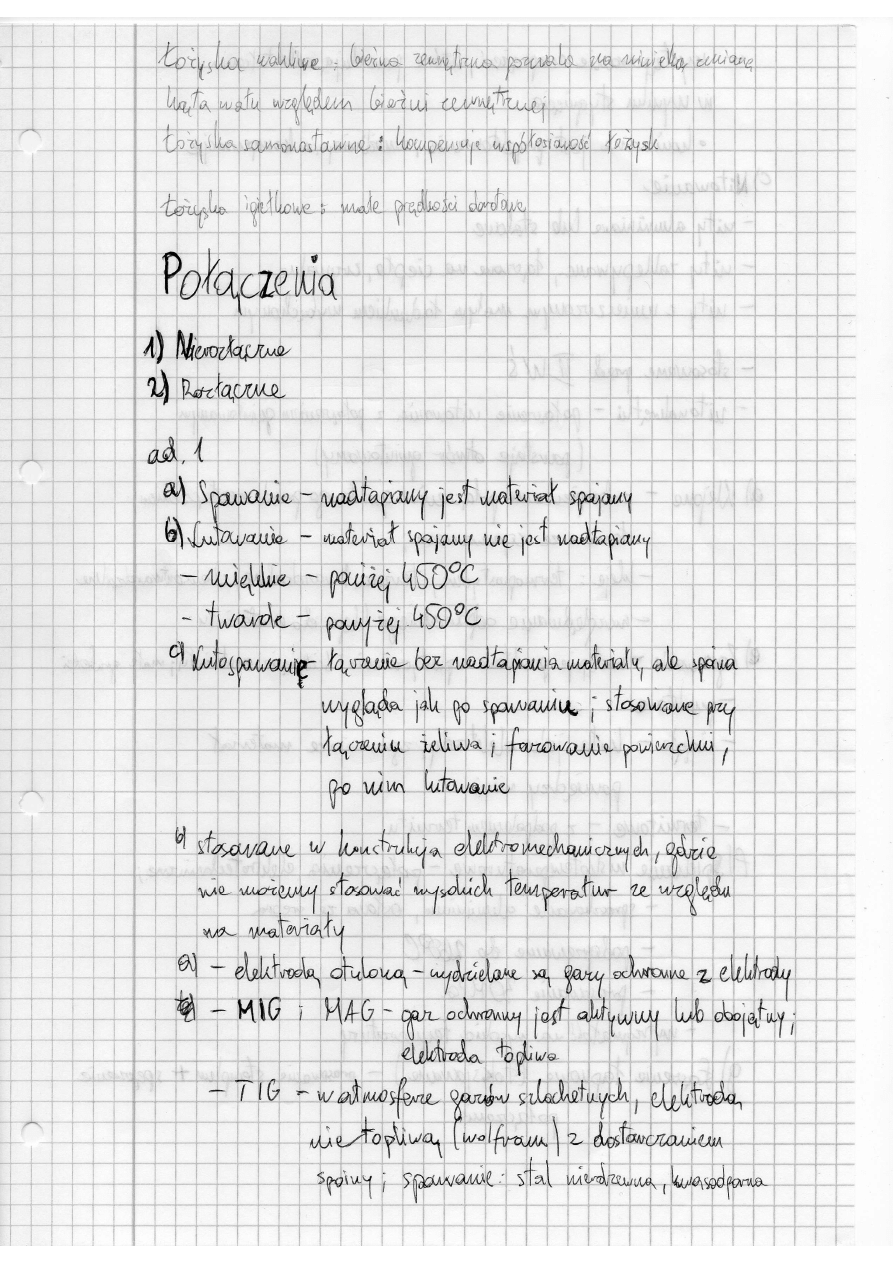 Łożyska wahliwe : bieżna zewnętrzna pozwala na niewielką zmianę
kąta wału względem bieżni zewnętrznej
Łożyska samonastawne : kompensuje współosiowość łożysk
Łożyska igiełkowe : małe prędkości obrotowe
Połączenia
1) Nierozłączne
2) Rozłączne
ad. 1
a) Spawanie – nadtapiany jest materiał spajany
b) Lutowanie – materiał spajany nie jest nadtapiany
– miękkie – poniżej 450°C
– twarde – powyżej 450°C
c) Lutospawanie – łączenie bez nadtapiania materiału, ale spoina
wygląda jak po spawaniu ; stosowane przy
łączeniu żeliwa ; fazowanie powierzchni,
po nim lutowanie
b) stosowane w konstrukcja elektromechanicznych, gdzie
nie możemy stosować wysokich temperatur ze względu
na materiały
a) – elektrodą otuloną – wydzielane są gazy ochronne z elektrody
– MIG i MAG – gaz ochronny jest aktywny lub obojętny ;
elektroda topliwa
– TIG – w atmosferze gazów szlachetnych, elektrodą
nietopliwą (wolfram) z dostarczaniem
spoiny ; spawanie : stal nierdzewna, kwasoodporna